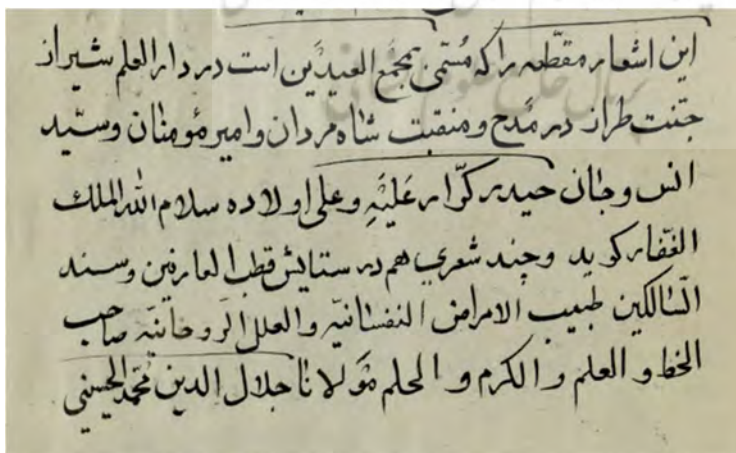 این اشعار مقطّعه را که مُسَمّیٰ بمجمَع العیدَین است در دار العلم شیراز
جنّت طراز در مَدح و منقبت شاه مردان وامیر مؤمنان وسیّد
انس وجان حیدر کرّار عَلَیْهِ وعلی اولاده سلام الله الملک
الغفّار کوید وچند شعری هم در ستایش قطب العارفین وسند
السّالکین طبیب الامراض النفسانیّه والعلل الرّوحانیّه صاحب
الخط و العلم و الکرم و الحلم مَوْلانا جلال الدین محمّد الحسینی